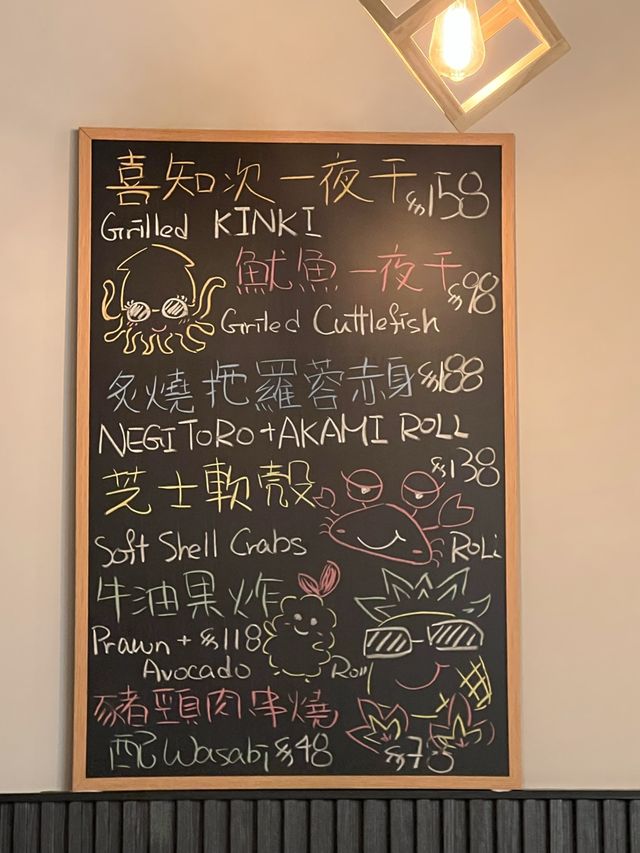 喜知次一夜干 $158
Grilled KINKI
魷魚一夜干 $98
Grilled Cuttlefish
炙燒拖羅蓉赤身 $188
NEGITORO+AKAMI ROLL
芝士軟殼 $138
Soft Shell Crabs Roll
牛油果炸
Prawn + $118
Avocado Roll
豬頸肉串燒
配 Wasabi $48
$78